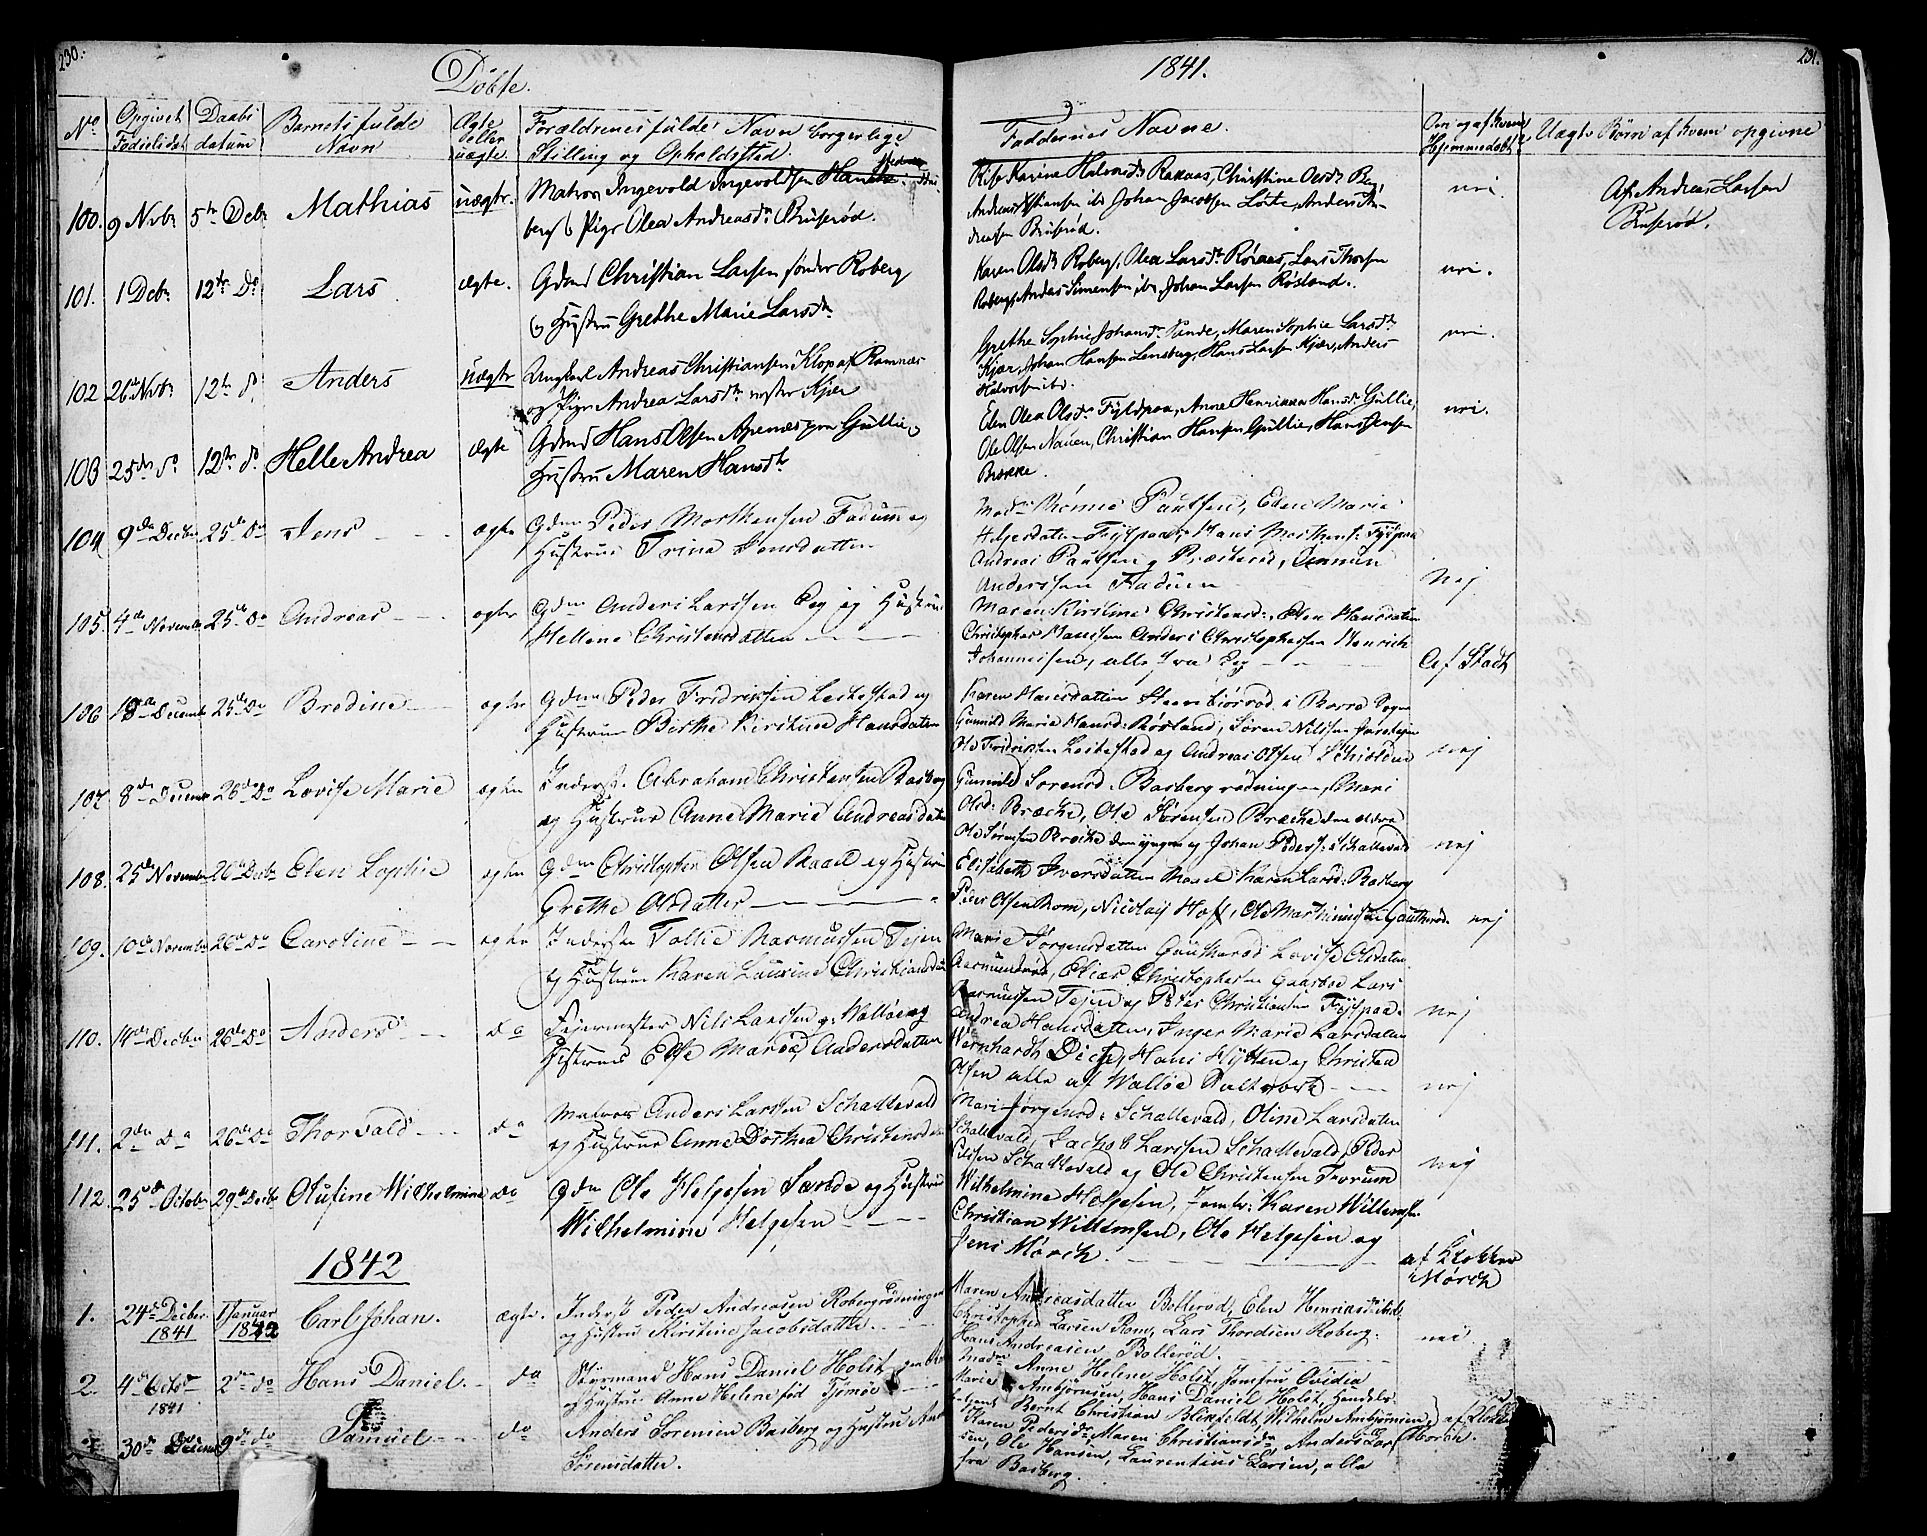 230.
Döbte.
1841.
231.
No
Opgivet Födselsdat
Daabsdatum
Barnets fulde Navn
Ægte eller uægte
Forældrenes fulde Navn borgerlige Stilling og Opholdssted.
Faddernes Navne.
Om og af hvem Hjemmedøbt
Uægte Børn af hvem opgivne
100. 9 Nvbr 5te Debr Mathias uægte. Matros Ingevold Ingevoldsen
Pige Olea Andreasdr. Bruserød.
Karine Halvorsdr Ramnas, Christine Olsdr
Johan Jacobsen Löite, Anders Andreasen Bruserød.
nei
Af Andreas Larsen
Bruserød.
101. 1 Debr 12te Do Lars ægte. Gdmd Christian Larsen sönder Roberg
og Hustru Grethe Marie Larsdr
Karen Olsdr Roberg, Olea Larsdr Röraas, Lars Thorsen
Roberg, Anders Simensen ibd, Johan Larsen Røsland.
nei.
102 26 Nvbr 12te do. Anders uægte Ungkarl Andreas Christiansen Klopaf Ramnæs
og Pige Andrea Larsdr vester Kjær
Grethe Sophie Johansdr Sande, Maren Sophie Larsdr
Kjær, Johan Hansen Lensberg, Hans Larsen Kjær, Anders
Halvorsen ibd.
nei.
103 25de do 12te do. Helle Andrea ægte Gdmd Hans Olsen Apenæs paa Gullie og
Hustru Maren Hansdr
Elen Olea Olsdr Fyldpaa, Anne Henrikka Hansdr Gullie,
Ole Olsen Nauen, Christian Hansen Gullie, Hans Jensen
Brække.
nei.
104 9de Decbr 25de Do Jens ægte Gdmd Peder Morthensen Fadum og
Hustrue Trine Jensdatter
Madm Rønne Paulsen, Elen Marie
Helgesdatter Fyllpaa, Hans Morthens: Fyllpaa
Andreas Paulsen Præsterød, Amun
Anderssen Fadum
Nej
105. 4de November 25de Do Andreas ægte Gdmd Anders Larssen Eeg og Hustrue
Hellene Christensdatter
Maren Kirstine Christensd:, Elen Hansdatter
Christopher Hanssen Anders Christophersen Henrich
Johannessen, alle fra Eeg
Af Stadt
106 18de December 25de Do Bredine ægte Gdmd Peder Fridriksen Leikestad og
Hustrue Birthe Kirstine Hansdatter
Karen Hansdatter Steenbiørrød i Borre Sogn
Gunnild Marie Hansd: Røsland, Søren Nilsen
Ole Fridriksen Leikestad og Andreas Olsen Schiolden
nej
107. 8de December 26de Do Lovise Marie ægte Inderst. Abraham Christensen Basberg
og Hustrue Anne Marie Andreasdatter
Gunnild Sørensd: Basbergrødningen, Mari
Olsd: Bræche, Ole Sørensen Bræche den ældre
Ole Sørensen Bræche den yngre og Johan Peders: Schallevald
nej
108. 25de November 26de Decbr Elen Sophie ægte Gdmd Christopher Olsen Raael og Hustrue
Grethe Olsdatter
Elisabeth Iversdatter Raael Karen Larsd: Basberg
Peder Olsen Rom, Nicolay Hoff, Ole Marthinussen Gautherød.
nej
109. 10de November 26de Do Caroline ægte Inderste Tollie Rasmussen Tejen
og Hustrue Karen Laurine Christiansdatter
Marie Jørgensdatter Gautherød Lovise Olsdatter
Elias Christophersen Gaarbo Lars
Rasmussen Tejen og Peder Christiansen Fyllpaa.
nej
110. 14de Decbr 26de Do Anders Do Feiermester Nils Larssen Walløe og
Hustrue Else Marie Andersdatter
Andrea Hansdatter, Inger Marie Larsdatter
Wernhardt Dicte, Hans Hytten og Christen
Olsen alle af Walløe Saltværk
nej
111. 2de Do 26de Do Thorvald Do Matros Anders Larssen Schallevald
og Hustrue Anne Dorthea Christensd
Mari Jørgensd: Schallevald, Oline Larsdatter
Schallevald, Jachob Larssen Schallevald, Peder
Schallevald og Ole Christensen Forum
nej
112. 25de October 29de Decbr Olufine Wilhelmine Do Gdmd Ole Helgesen Sande og Hustrue
Wilhelmine Helgesen
Wilhelmine Helgesen, Jomfr: Karen Willemsen
Christian Willemsen, Ole Helgesen og
Jens Mørch.
af Klokker
Mörch
1842
1. 24de Decber 1841 1 Januar 1842 Carl Johan. ægte. Inderst Peder Andreasen Robergrødningen
og Hustru Kirstine Jacobsdatter.
Maren Andreasdatter Bollerød, Elen Henriksdatter
Christopher Larsen Rom, Lars Thordsen Roberg.
Hans Andreasen Bollerød.
nei.
2. 4de Octob 1841 2den do Hans Daniel. do Styrmand Hans Daniel Holst
og Hustru Anne Helene föd Tjömöe
Madm Anne Helene Holst, Jomfru Ovidia
Marie Ambjörnsen, Hans Daniel Holst, Handels-
betjent Bernt Christian Blixfeldt, Wilhelm Ambjörnsen.
af Klokker
Mörch.
30de Decemb 9de do Samuel do. Anders Sørensen Basberg og Hustru
Sörensdatter.
Karen Pedersdr, Maren Christiansdr Anders Lar-
sen, Ole Hansen, Laurentius Larsen, alle
fra Basberg.